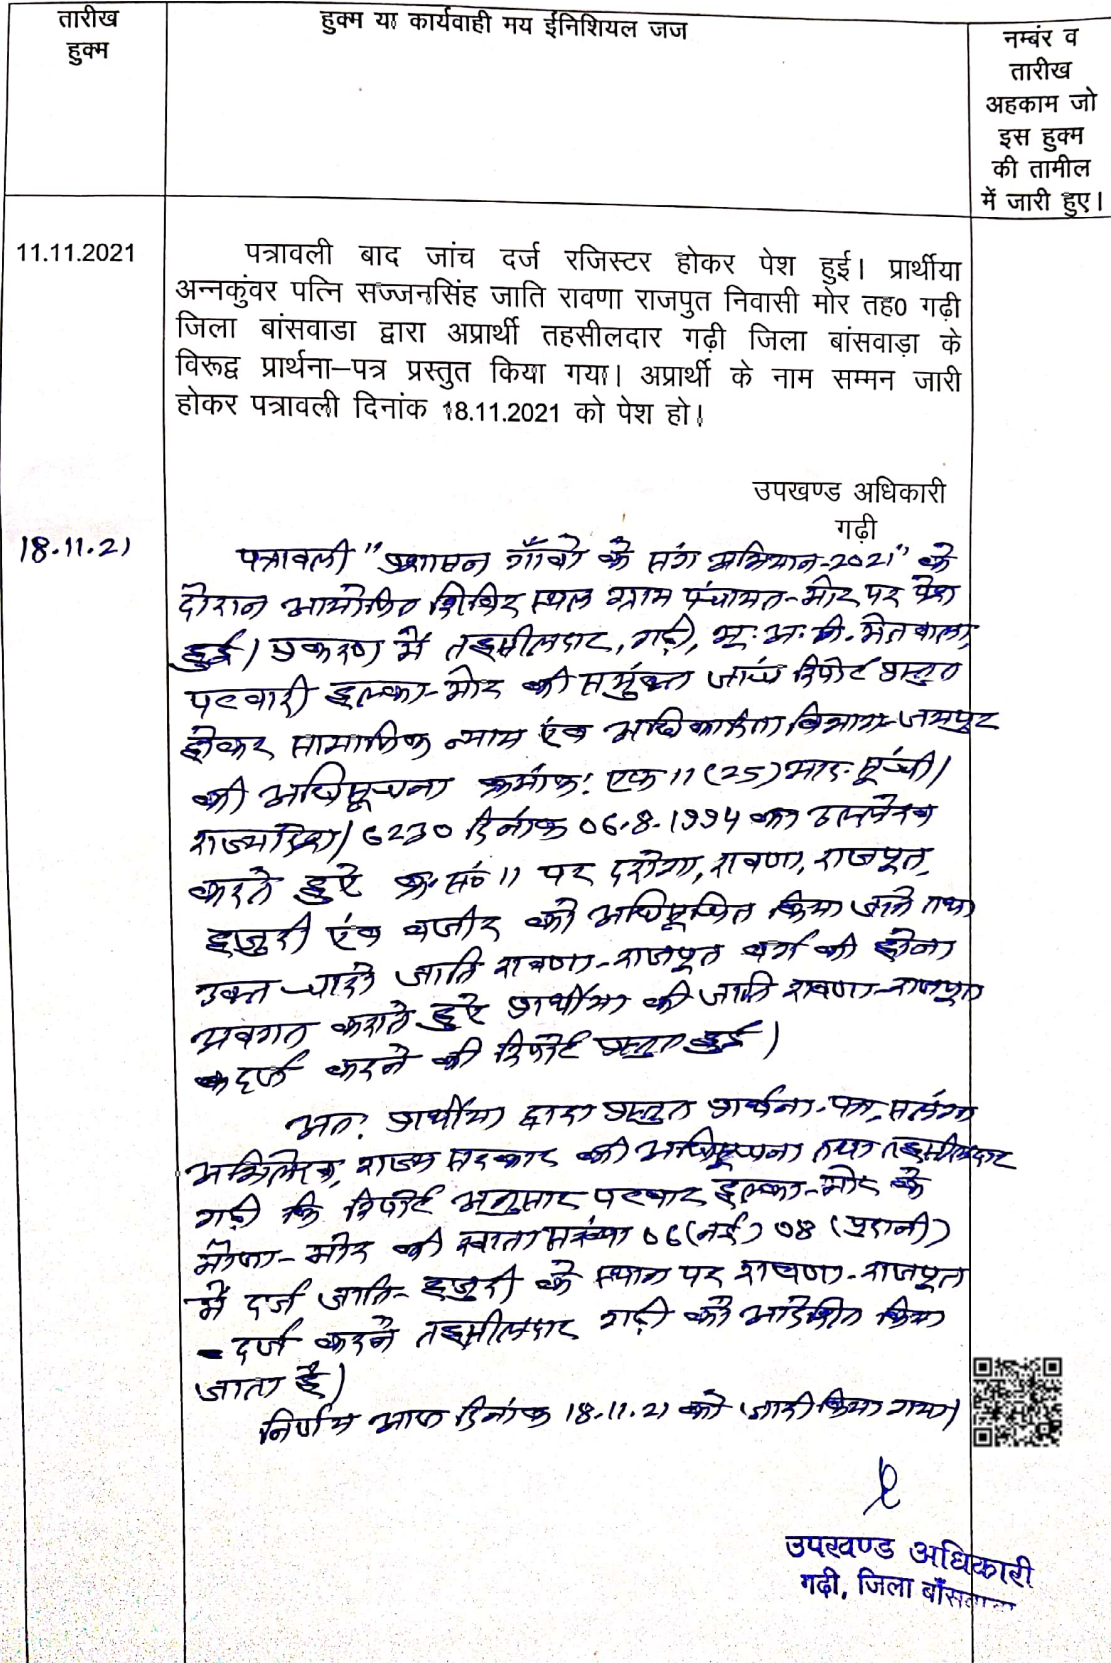 तारीख
हुक्म
हुक्म या कार्यवाही मय ईनिशियल जज
नम्बंर व
तारीख
अहकाम जो
इस हुक्म
की तामील
में जारी हुए।
11.11.2021
पत्रावली बाद जांच दर्ज रजिस्टर होकर पेश हुई। प्रार्थीया
अन्नकुंवर पत्नि सज्जनसिंह जाति रावणा राजपुत निवासी मोर तह0 गढ़ी
जिला बांसवाडा द्वारा अप्रार्थी तहसीलदार गढ़ी जिला बांसवाड़ा के
विरूद्व प्रार्थना–पत्र प्रस्तुत किया गया। अप्रार्थी के नाम सम्मन जारी
होकर पत्रावली दिनांक 18.11.2021 को पेश हो।
उपखण्ड अधिकारी
गढ़ी
18.11.21
पत्रावली "प्रशासन गाँवो के संग अभियान-2021" के
दौरान आयोजित शिविर स्थल ग्राम पंचायत-मोर पर पेश
हुई। प्रकरण में तहसीलदार, गढ़ी, भू.अ.नि. मेतवाला,
पटवारी हल्का-मोर की संयुक्त जांच रिपोर्ट प्रस्तुत
होकर सामाजिक न्याय एंव अधिकारिता विभाग-जयपुर
की अधिसूचना क्रमांक: एफ 11 (25)
6230 दिनांक 06.8.1994 का उल्लेख
करते हुऐ क्र.सं० 11 पर दरोगा, रावणा, राजपूत,
हजुरी एंव वजीर को अधिसूचित किया जाने तथा
उक्त चारो जाति रावणा-राजपूत वर्ग की होना
अवगत कराते हुऐ प्रार्थीया की जाति रावणा-राजपूत
दर्ज करने की रिपोर्ट प्रस्तुत हुई।
अत: प्रार्थीया द्वारा प्रस्तुत प्रार्थना-पत्र, सलंग्न
अभिलेख, राज्य सरकार की अधिसूचना तथा तहसीलदार
गढ़ी कि रिपोर्ट अनुसार पटवार हल्का-मोर के
मौजा-मोर की खाता संख्या 06 (नई) 08 (पुरानी)
में दर्ज जाति- हजुरी के स्थान पर रावणा-राजपूत
दर्ज करने तहसीलदार गढ़ी को आदेशित किया
जाता है।
निर्णय आज दिनांक 18.11.21 को जारी किया गया।
उपखण्ड अधिकारी
गढ़ी, जिला बाँसवाड़ा